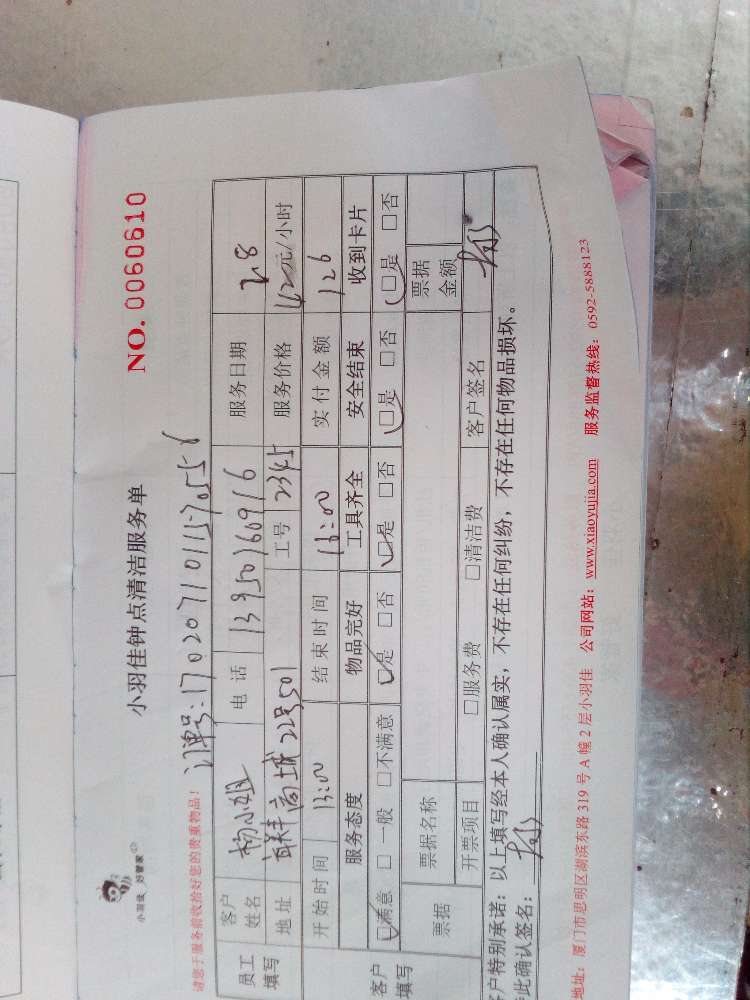 小羽佳 好管家
小羽佳钟点清洁服务单
NO. 0060610
请您于服务前收拾好您的贵重物品!
订单号:
员工填写
客户姓名 杨小姐 电话 13950160916 服务日期 2.8
地址 联丰商城22号501 工号 2345 服务价格 42元/小时
开始时间 13:00 结束时间 16:00 实付金额 126
客户填写
服务态度 物品完好 工具齐全 安全结束 收到卡片
□满意 □一般 □不满意 □是 □否 □是 □否 □是 □否 □是 □否
票据 票据名称 票据金额
开票项目 □服务费 □清洁费 客户签名
客户特别承诺:以上填写经本人确认属实,不存在任何纠纷,不存在任何物品损坏。
此确认签名:
地址:厦门市思明区湖滨东路 319 号 A 幢 2 层小羽佳 公司网站:www.xiaoyujia.com 服务监督热线:0592-5888123